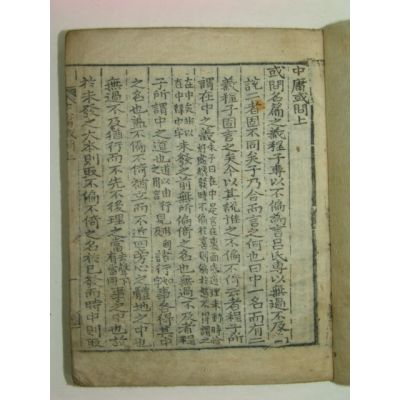 中庸或問上
或問名篇之義程子專以不偏為言呂氏專以無過不及為
說二者固不同矣子乃合而言之何也曰中一名而有二
義程子固言之矣今以其說推之不偏不倚云者程子所
謂在中之義朱子曰在中是言在裏面底道理未動時恰
未發之前無所偏倚之名也無過不及者程
子所謂中之道也見諸行事各得其中
之名也蓋不偏不倚猶立而不近四旁心之體地之中也
無過不及猶行而不先不後理之當事之中也故
於未發之大本則取不偏不倚之名於已發而時中則取